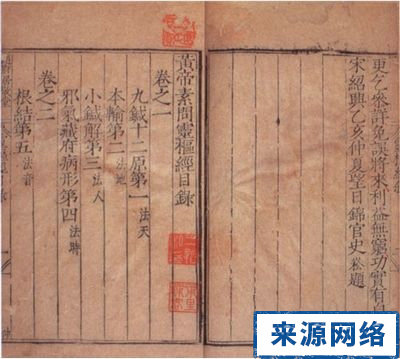 更乞參詳免誤將來利益無窮功實有
宋紹興乙亥仲夏望日錦官史崧題
黃帝素問靈樞經目錄
卷之一
九鍼十二原第一 法天
本輸第二 法地
小鍼解第三 法人
邪氣藏府病形第四 法時
卷之二
根結第五 法音
来源网络